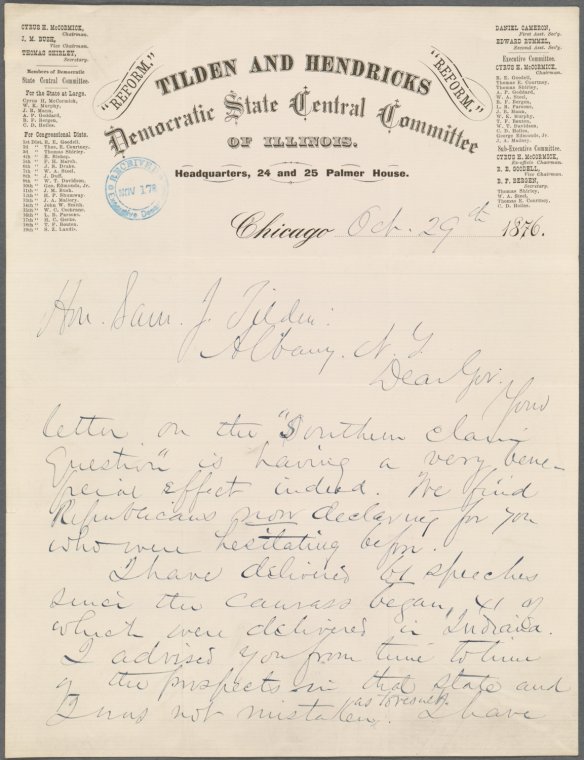 CYRUS H. McCORMICK,
Chairman.
J. M. BUSH,
Vice Chairman.
THOMAS SHIRLEY,
Secretary.
Members of Democratic
State Central Committee.
For the State at Large.
Cyrus H. McCormick,
W. K. Murphy,
J. R. Mann,
A. F. Goddard,
B. F. Bergen,
C. D. Hoiles.
For Congressional Dists.
1st Dist. R. E. Goodell.
2d " Thos. E. Courtney.
3d " Thomas Shirley.
4th " R. Bishop.
5th " F. H. Marsh.
6th " J. S. Drake.
7th " W. A. Steel.
8th " J. Duff.
9th " W. T. Davidson.
10th " Geo. Edmunds, Jr.
11th " J. M. Bush.
12th " H. P. Shumway.
13th " J. A. Mallory.
14th " John W. Smith.
15th " W. C. Crebs
16th " L. B. Parsons.
17th " H. C. Gerke.
18th " T. F. Bouton.
19th " S. Z. Landis.
"REFORM."
TILDEN AND HENDRICKS
"REFORM."
Democratic State Central Committee
OF ILLINOIS.
Headquarters, 24 and 25 Palmer House.
RECEIVED
NOV 1 '76
DANIEL CAMERON,
First Asst. Sec'y.
EDWARD RUMMEL,
Second Asst. Sec'y.
Executive Committee.
CYRUS H. McCORMICK,
Chairman.
R. E. Goodell,
Thomas E. Courtney,
Thomas Shirley,
A. F. Goddard,
W. A. Steel,
B. F. Bergen,
L. B. Parsons,
J. R. Mann,
W. K. Murphy,
T. F. Bouton,
W. T. Davidson,
C. D. Hoiles,
George Edmunds, Jr.
J. A. Mallory.
Sub-Executive Committee.
CYRUS H. McCORMICK,
Exofficio Chairman.
R. E. GOODELL,
Vice Chairman.
B. F. BERGEN,
Secretary.
Thomas Shirley,
W. A. Steel,
Thomas E. Courtney,
C. D. Hoiles.
Chicago Oct. 29th 1876.
Hon. Sam. J. Tilden:
Albany. N. Y.
Dear Gov. Your
letter on the "Southern claim
Question" is having a very bene-
ficial effect indeed. We find
Republicans now declaring for you
who were hesitating before.
I have delivered speeches
since the canvass began, 41 of
which were delivered in Indiana.
I advised you from time to time
of the prospects in that state and
I was not mistaken as to result. I have